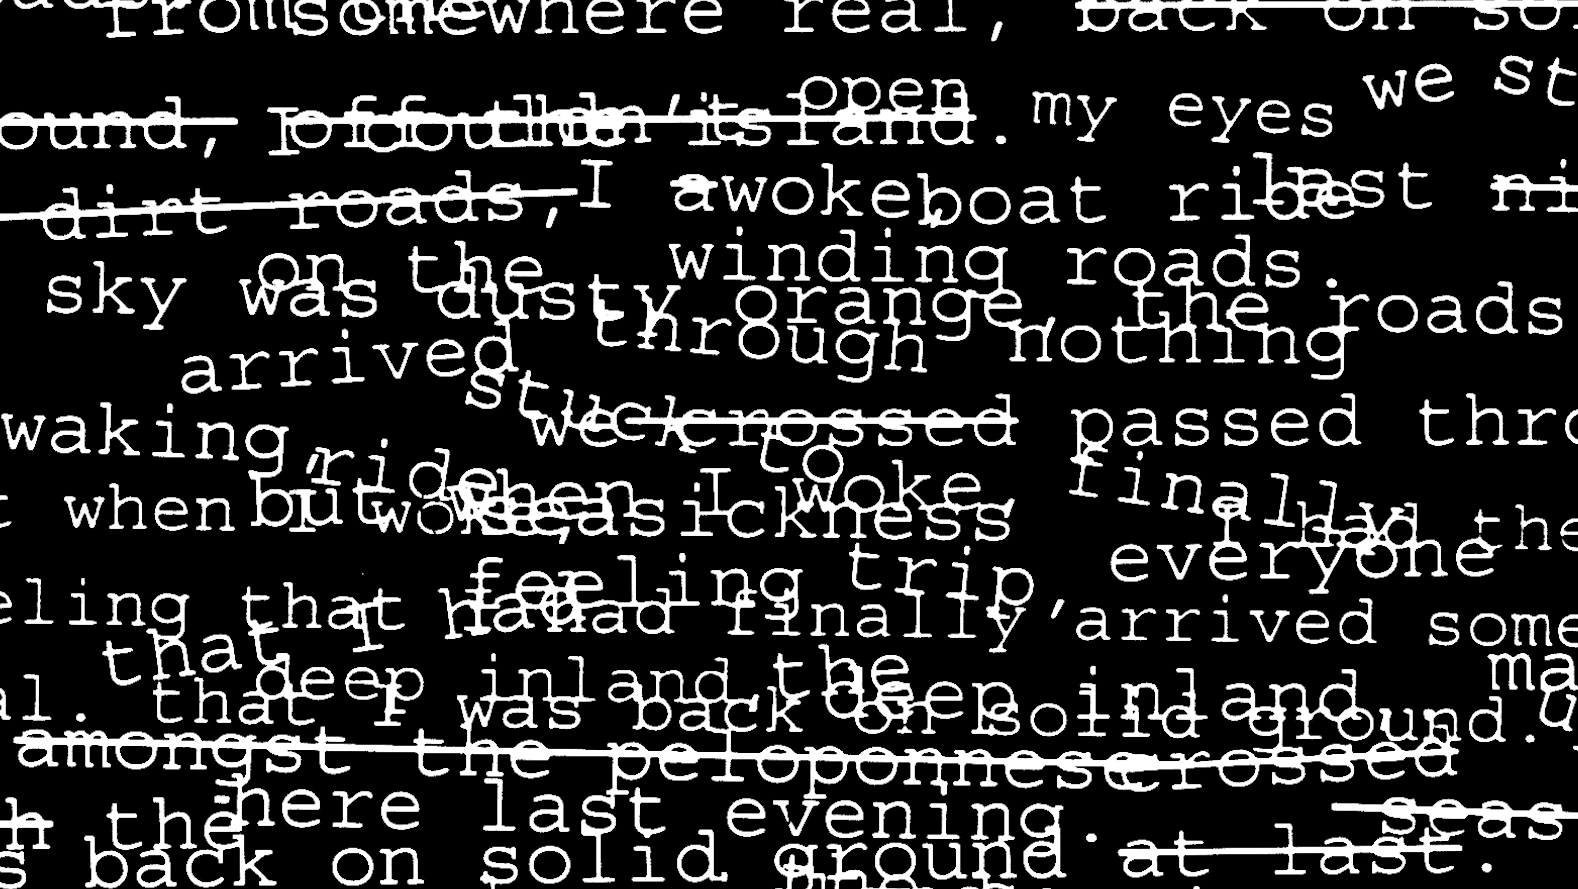 from somewhere real, back on
open
ound, I couldn't
off the island. my eyes we
dirt roads, I awoke, boat ride last
on the winding roads.
sky was dusty orange, the roads
arrived through nothing
stuck
we crossed passed
waking, ride to
but when I woke, finally
when I woke, seasickness I had the
feeling trip, everyone
eling that I had finally arrived some
that I had
deep inland, the deep inland,
al. that I was back on solid ground.
amongst the peloponnese crossed
the here last evening. seas
s back on solid ground at last.